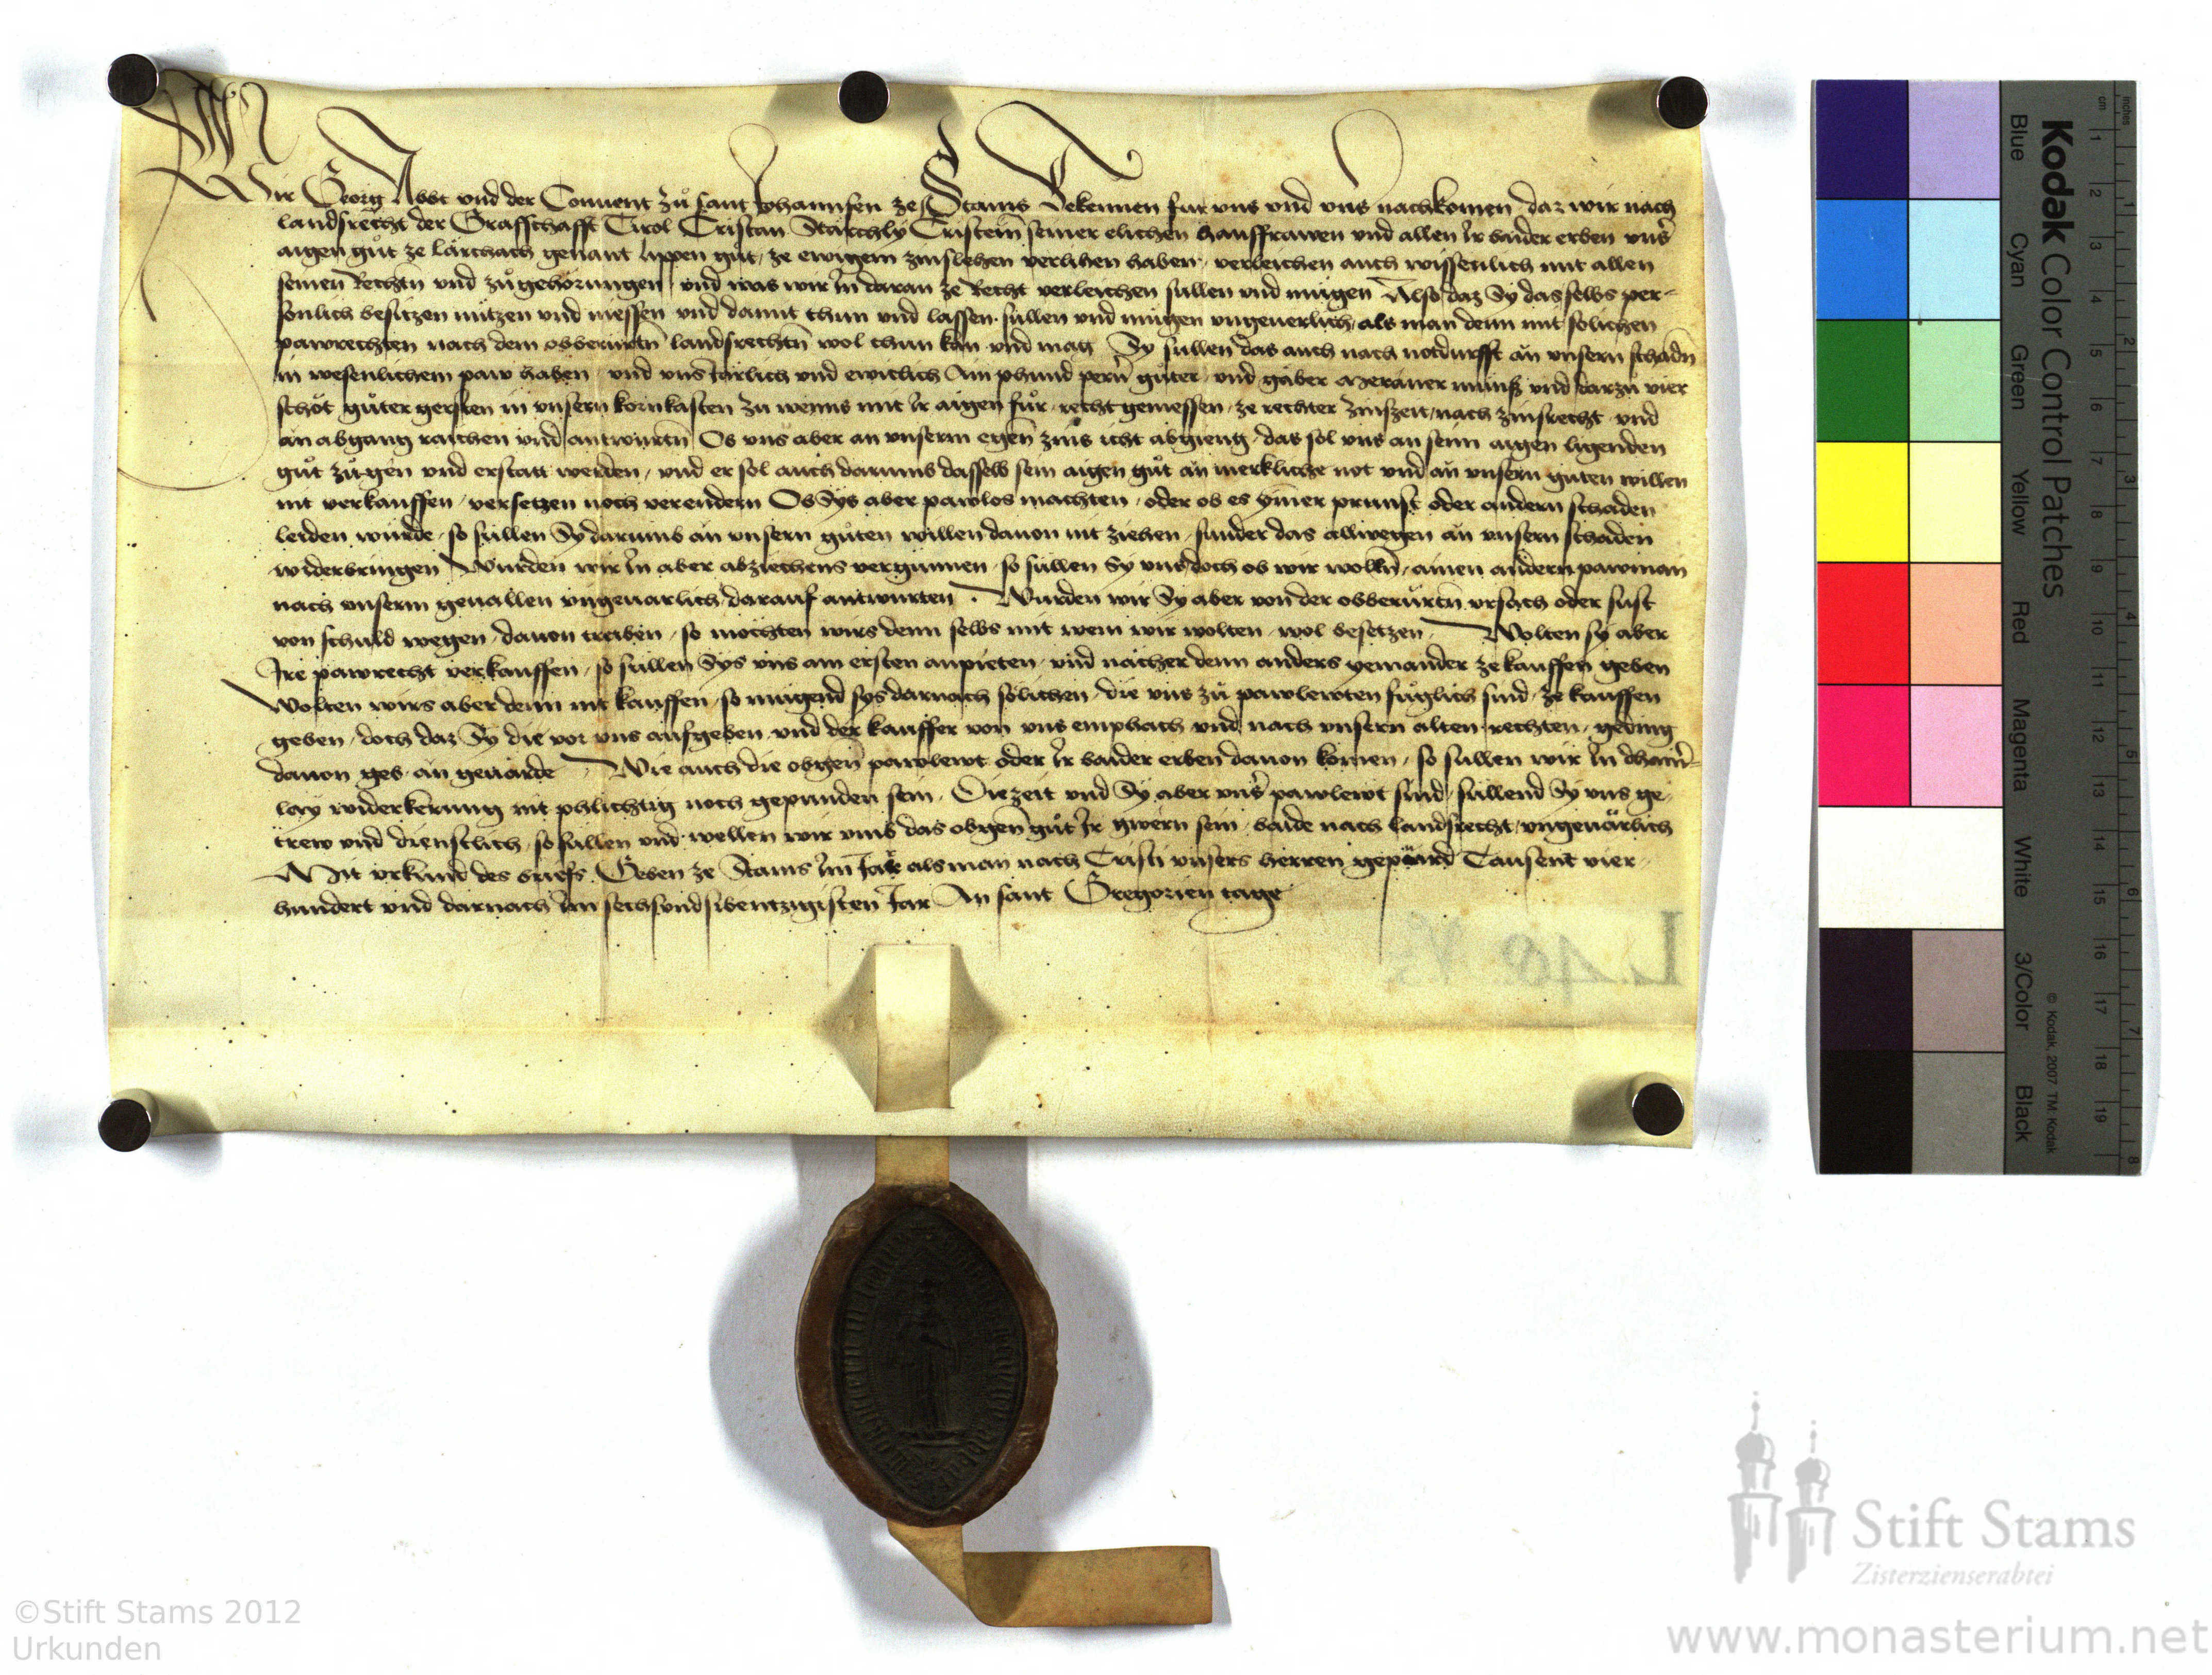 Wir Georg Abbt vnd der Conuent zů sant Johannsen ze Stams Bekennen fur vns vnd vns nachkomen daz wir nach
landsrecht der Grafschafft Tirol Cristan Starchly Cristein seiner elichen hausfrawen vnd allen Ir baider erben vnser
aigen gůt ze Lärchach genant Lippen gůt, ze ewigem zinslehen verlihen haben, verleichen auch wissenlich mit allen
seinen Rechtn vnd zůgehörungen vnd was wir In daran ze Recht verleichen sullen vnd mugen Also daz Sy das selbs per-
sonlich besitzen nützen vnd niessen vnd damit thun vnd lassen sullen vnd mügen vngeuerlich, als man denn mit solichen
pawrechten nach dem obberürtn landsrechtn wol thun kan vnd mag Sy sullen das auch nach notdurfft än vnsern schadn
in wesenlichem paw haben, vnd vns Järlich vnd ewiclich Ain phund perner gůter vnd gäber Meraner münß vnd darzů vier
schöt gůter gersten in vnsern kornkasten zu wenns mit Ir aigen fůr, recht gemessen, ze rechter zinszeit, nach zinsrecht vnd
än abgang raichen vnd antwurtn Ob vns aber an vnserm egen zins icht abgieng, das sol vns an seim aigen ligenden
gůt zůgen vnd erstatt werden, vnd er sol auch darumb dasselb sein aigen gůt än merkliche not vnd än vnsern guten willen
nit verkauffen, versetzen noch verendern Ob Sys aber pawlos machten, oder ob es ymer prunst oder andern schaden
leiden würde, so sullen Sy darumb än vnsern gůten willen dauon nit ziehen, sunder das allwegen än vnsern schaden
widerbringen Würden wir In aber abziechens vergunnen, so süllen Sy vns doch ob wir wolln, ainen andern pawman
nach vnserm geuallen vngeuarlich darauf antwurten. Wurden wir Sy aber von der obberürtn vrsach oder sust
von schuld wegen, dauon treiben, so möchten wirs denn selbs mit wem wir wolten, wol besetzen, Wolten sy aber
Ire pawrecht verkauffen, so süllen Sys vns am ersten anpieten, vnd nächer denn anders yemander ze kauffen geben
Wolten wirs aber denn nit kauffen, so mugend sys darnach solichen, die vns zů pawlewten fůglich sind, ze kauffen
geben, doch daz Sy die vor vns aufgeben vnd der kauffer von vns emphach vnd nach vnsern alten rechten, geding
dauon geb än geuärde, Wie auch die obgen pawlewt oder Ir baider erben dauon komen, so sullen wir In dhainer-
lay widerkerung nit phlichtig noch gepunden sein, Die zeit vnd Sy aber vnser pawlewt sind, süllend Sy vns ge-
trew vnd dienstlich, so sullen vnd wellen wir vmb das obgen gůt Ir gwern sein, baide nach landsrecht, vngeuärlich
Mit vrkund des briefs, Geben ze Stams Im Jar als man nach Cristi vnsers herren gepürd Tausent vier-
hundert vnd darnach Im sechsundsibentzigisten Jar An sant Gregorien tage
L. 40. N
Kodak Color Control Patches
© Kodak, 2007 TM: Kodak
inches
cm
Blue Cyan Green Yellow Red Magenta White 3/Color Black
1 2 3 4 5 6 7 8
1 2 3 4 5 6 7 8 9 10 11 12 13 14 15 16 17 18 19
Stift Stams
Zisterzienserabtei
©Stift Stams 2012
Urkunden
www.monasterium.net